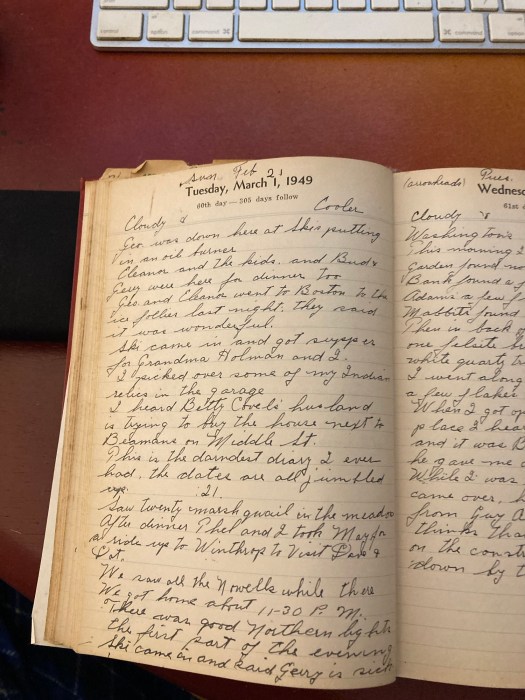 Sun. Feb 21
Tuesday, March 1, 1949
60th day — 305 days follow
Cloudy & Cooler
Geo. was down here at Skis putting
in an oil burner
Eleanor and the kids. and Bud &
Gerry were here for dinner too
Geo and Eleanor went to Boston to the
ice follies last night. they said
it was wonderful.
Ski came in and got supper
for Grandma Holman and I.
I picked over some of my Indian
relics in the garage
I heard Betty Covel's husband
is trying to buy the house next to
Beamans on Middle St.
This is the darndest diary I ever
had. the dates are all jumbled
up. 21.
Saw twenty marsh quail in the meadow
After dinner Thel and I took May for
a ride up to Winthrop to Visit Dave &
Dot.
We saw all the Nowells while there
We got home about 11-30 P.M.
There was good Northern lights
the first part of the evening
Ski came in and said Gerry is sick
(arrowheads) Pues.
Wednes
61st
Cloudy &
Washington's
This morning I
Garden found
Bank found a
Adams a few
Mabbitt found
Then in back
one felsite
white quartz
I went along
a few flakes
When I got
place I hear
and it was B
he gave me
While I was
came over. h
from Guy A
thinks that
on the const
down by t
option
command ⌘
command ⌘
option
control